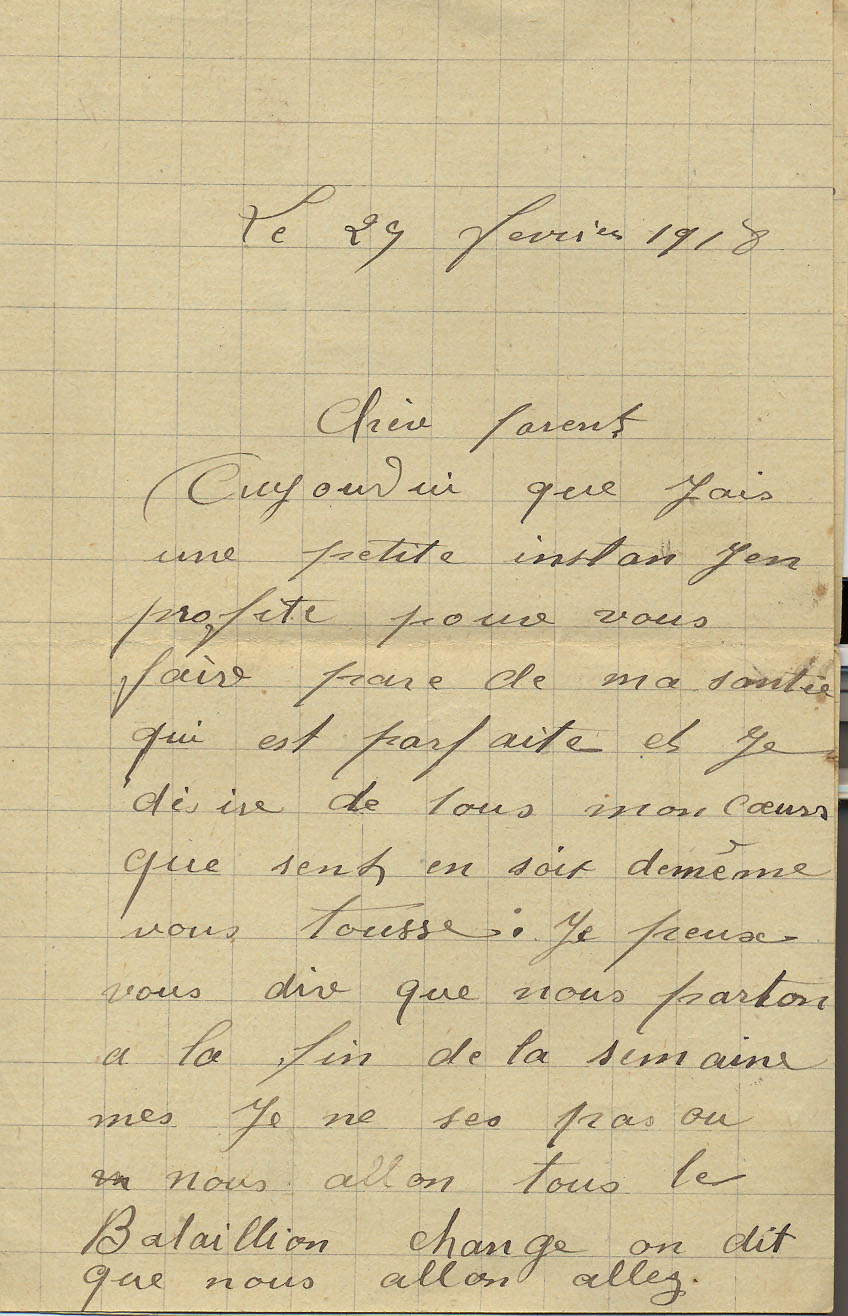 Le 27 fevrier 1918
Chère parent
Aujourdui que Jais
une petite instan Jen
profite poure vous
faire pare de ma santée
qui est parfaite et Je
désire de tous mon Cœurs
que sent en soit demême
vous tousse : Je peux
vous dire que nous parton
a la fin de la semaine
mes Je ne ses pas ou
nous allon tous le
Bataillion change on dit
que nous allon allez.